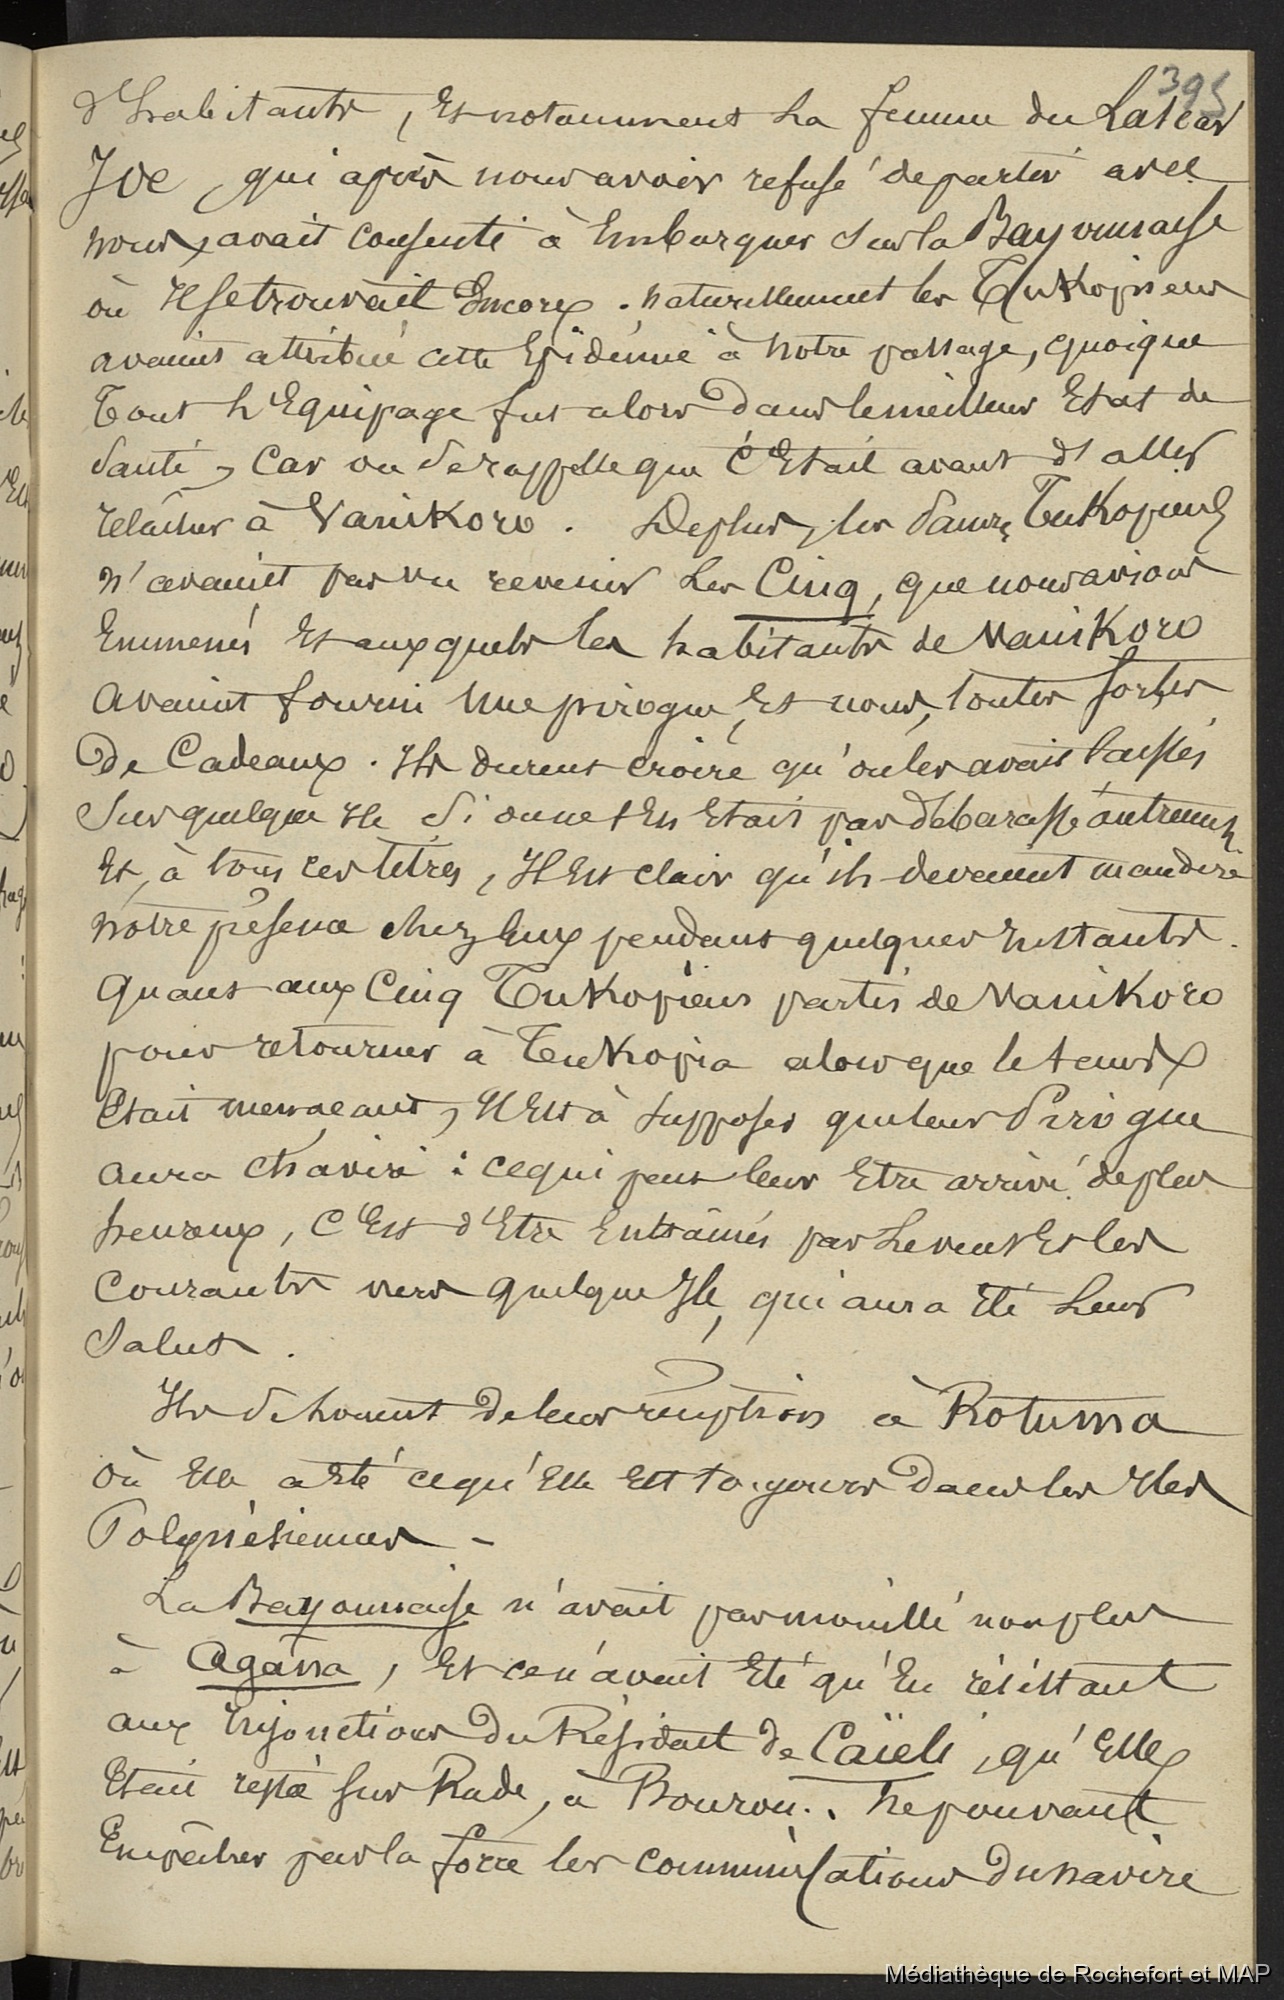 395
d'habitants, Et notamment La femme du Lascar
Joe, qui après nous avoir refusé de partir avec
nous, avait consenti à Embarquer sur la Bayonnaise
où Il se trouvait Encore. naturellement les Tukopiens
avaient attribué cette Epidémie à notre passage, quoique
Tout L'Equipage fut alors Dans le meilleur Etat de
Santé, Car on se rappelle que C'Etait avant d'aller
relâcher à Vanikoro. Deplus, les Sauvs Tukopiens
n'avaient pas vu revenir Les Cinq, que nous avions
Emmenés Et auxquels les habitants de Vanikoro
avaient fourni Une pirogue, Et nous, toutes sortes
De Cadeaux. Ils durent croire qu'on les avait laissés
Sur quelque Ile Si on ne s'En Etait pas débarassé autremt.
Et, à tous ces titres, Il Est clair qu'ils devaient maudire
notre présence chez Eux pendant quelques Instants.
Quant aux Cinq Tukopiens partis de Vanikoro
pour retourner à Tukopia alors que le temps
Etait menaçant, Il Est à supposer que leur Pirogue
aura chaviré : ce qui peut leur Etre arrivé de plus
heureux, C'Est d'Etre Entraînés par Le vent Et les
Courants vers quelque Ile, qui aura Eté Leur
Salut.
Ils se louent De leur réception à Rotuma
où Elle a Eté ce qu'Elle Est toujours Dans les Iles
Polynésiennes -
La Bayonnaise n'avait pas mouillé non plus
à Agâna, Et ce n'avait Eté qu'En résistant
aux Injonctions Du Résident de Caïeli, qu'Elle
Etait restée sur Rade, à Bourou.. Ne pouvant
Empêcher par la force les communications Du navire
Médiathèque de Rochefort et MAP